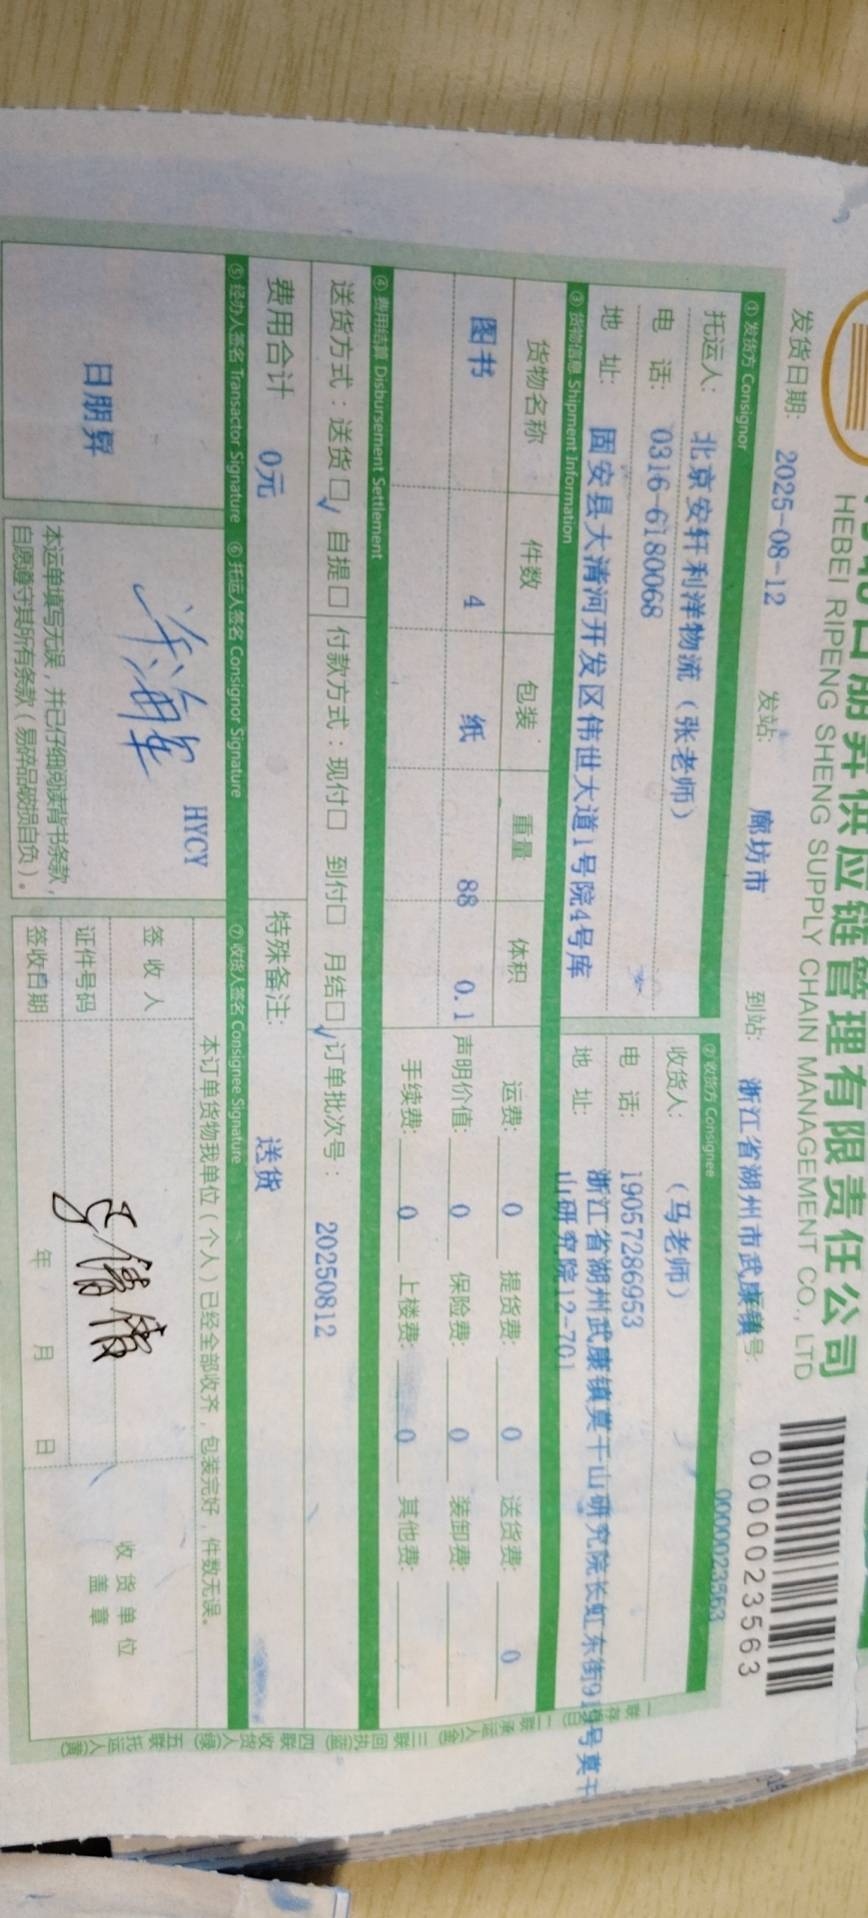 朋昇供应链管理有限责任公司
HEBEI RIPENG SHENG SUPPLY CHAIN MANAGEMENT CO., LTD
0000023563
发货日期: 2025-08-12 发站: 廊坊市 到站: 浙江省湖州市武康镇 号: 0000023563
① 发货方 Consignor
托运人: 北京安轩利洋物流（张老师）
电 话: 0316-6180068
地 址: 固安县大清河开发区伟世大道1号院4号库
② 收货方 Consignee
收货人: （马老师）
电 话: 19057286953
地 址: 浙江省湖州武康镇莫干山研究院长虹东街919号莫干
山研究院12-701
③ 货物信息 Shipment Information
货物名称 件数 包装 重量 体积
图书 4 纸 88 0.1
运费: 0 提货费: 0 送货费: 0
声明价值: 0 保险费: 0 装卸费:
手续费: 0 上楼费: 0 其他费:
④ 费用结算 Disbursement Settlement
送货方式：送货□√ 自提□ 付款方式：现付□ 到付□ 月结□√ 订单批次号： 20250812
费用合计 0元 特殊备注: 送货
⑤ 经办人签名 Transactor Signature ⑥ 托运人签名 Consignor Signature ⑦ 收货人签名 Consignee Signature
日朋昇
HYCY
本运单填写无误，并已仔细阅读背书条款，
自愿遵守其所有条款（易碎品破损自负）。
本订单货物我单位（个人）已经全部收齐，包装完好，件数无误。
签 收 人
证件号码
签收日期 年 月 日
收 货 单 位
盖 章
二联承运人(金) 三联回执(蓝) 四联收货人(绿) 五联托运人(黄)